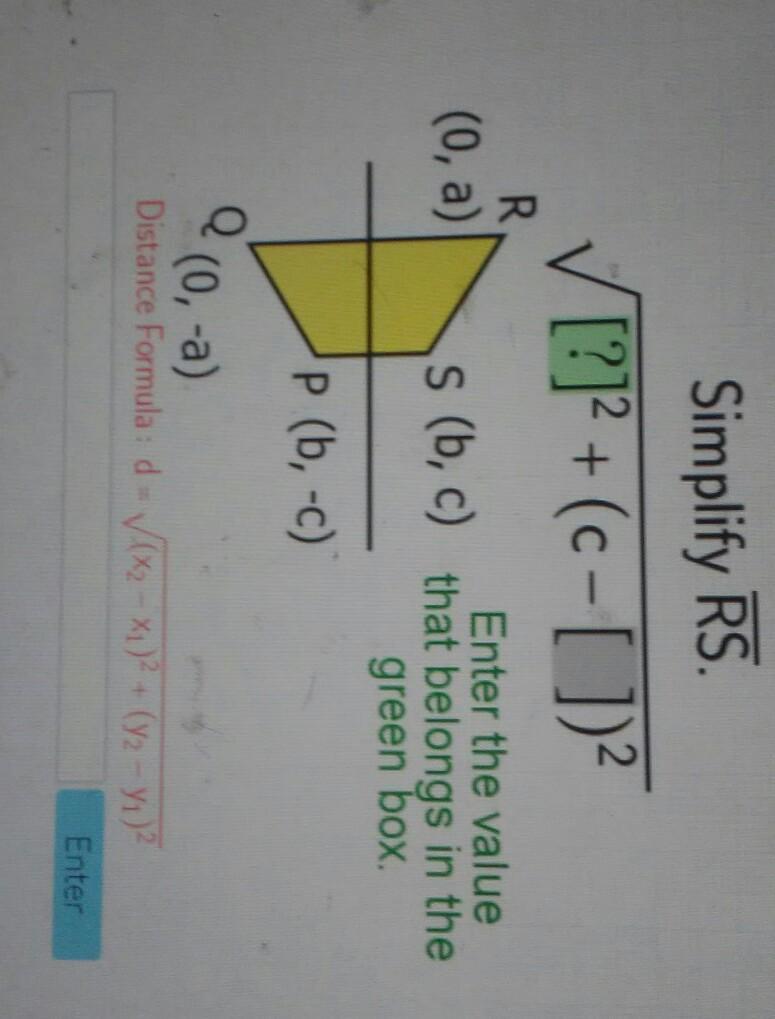 Simplify RS.
√[?]² + (c − [ ])²
R
(0, a)
S (b, c)
Enter the value
that belongs in the
green box.
P (b, -c)
Q (0, -a)
Distance Formula : d = √(x₂ − x₁)² + (y₂ − y₁)²
Enter